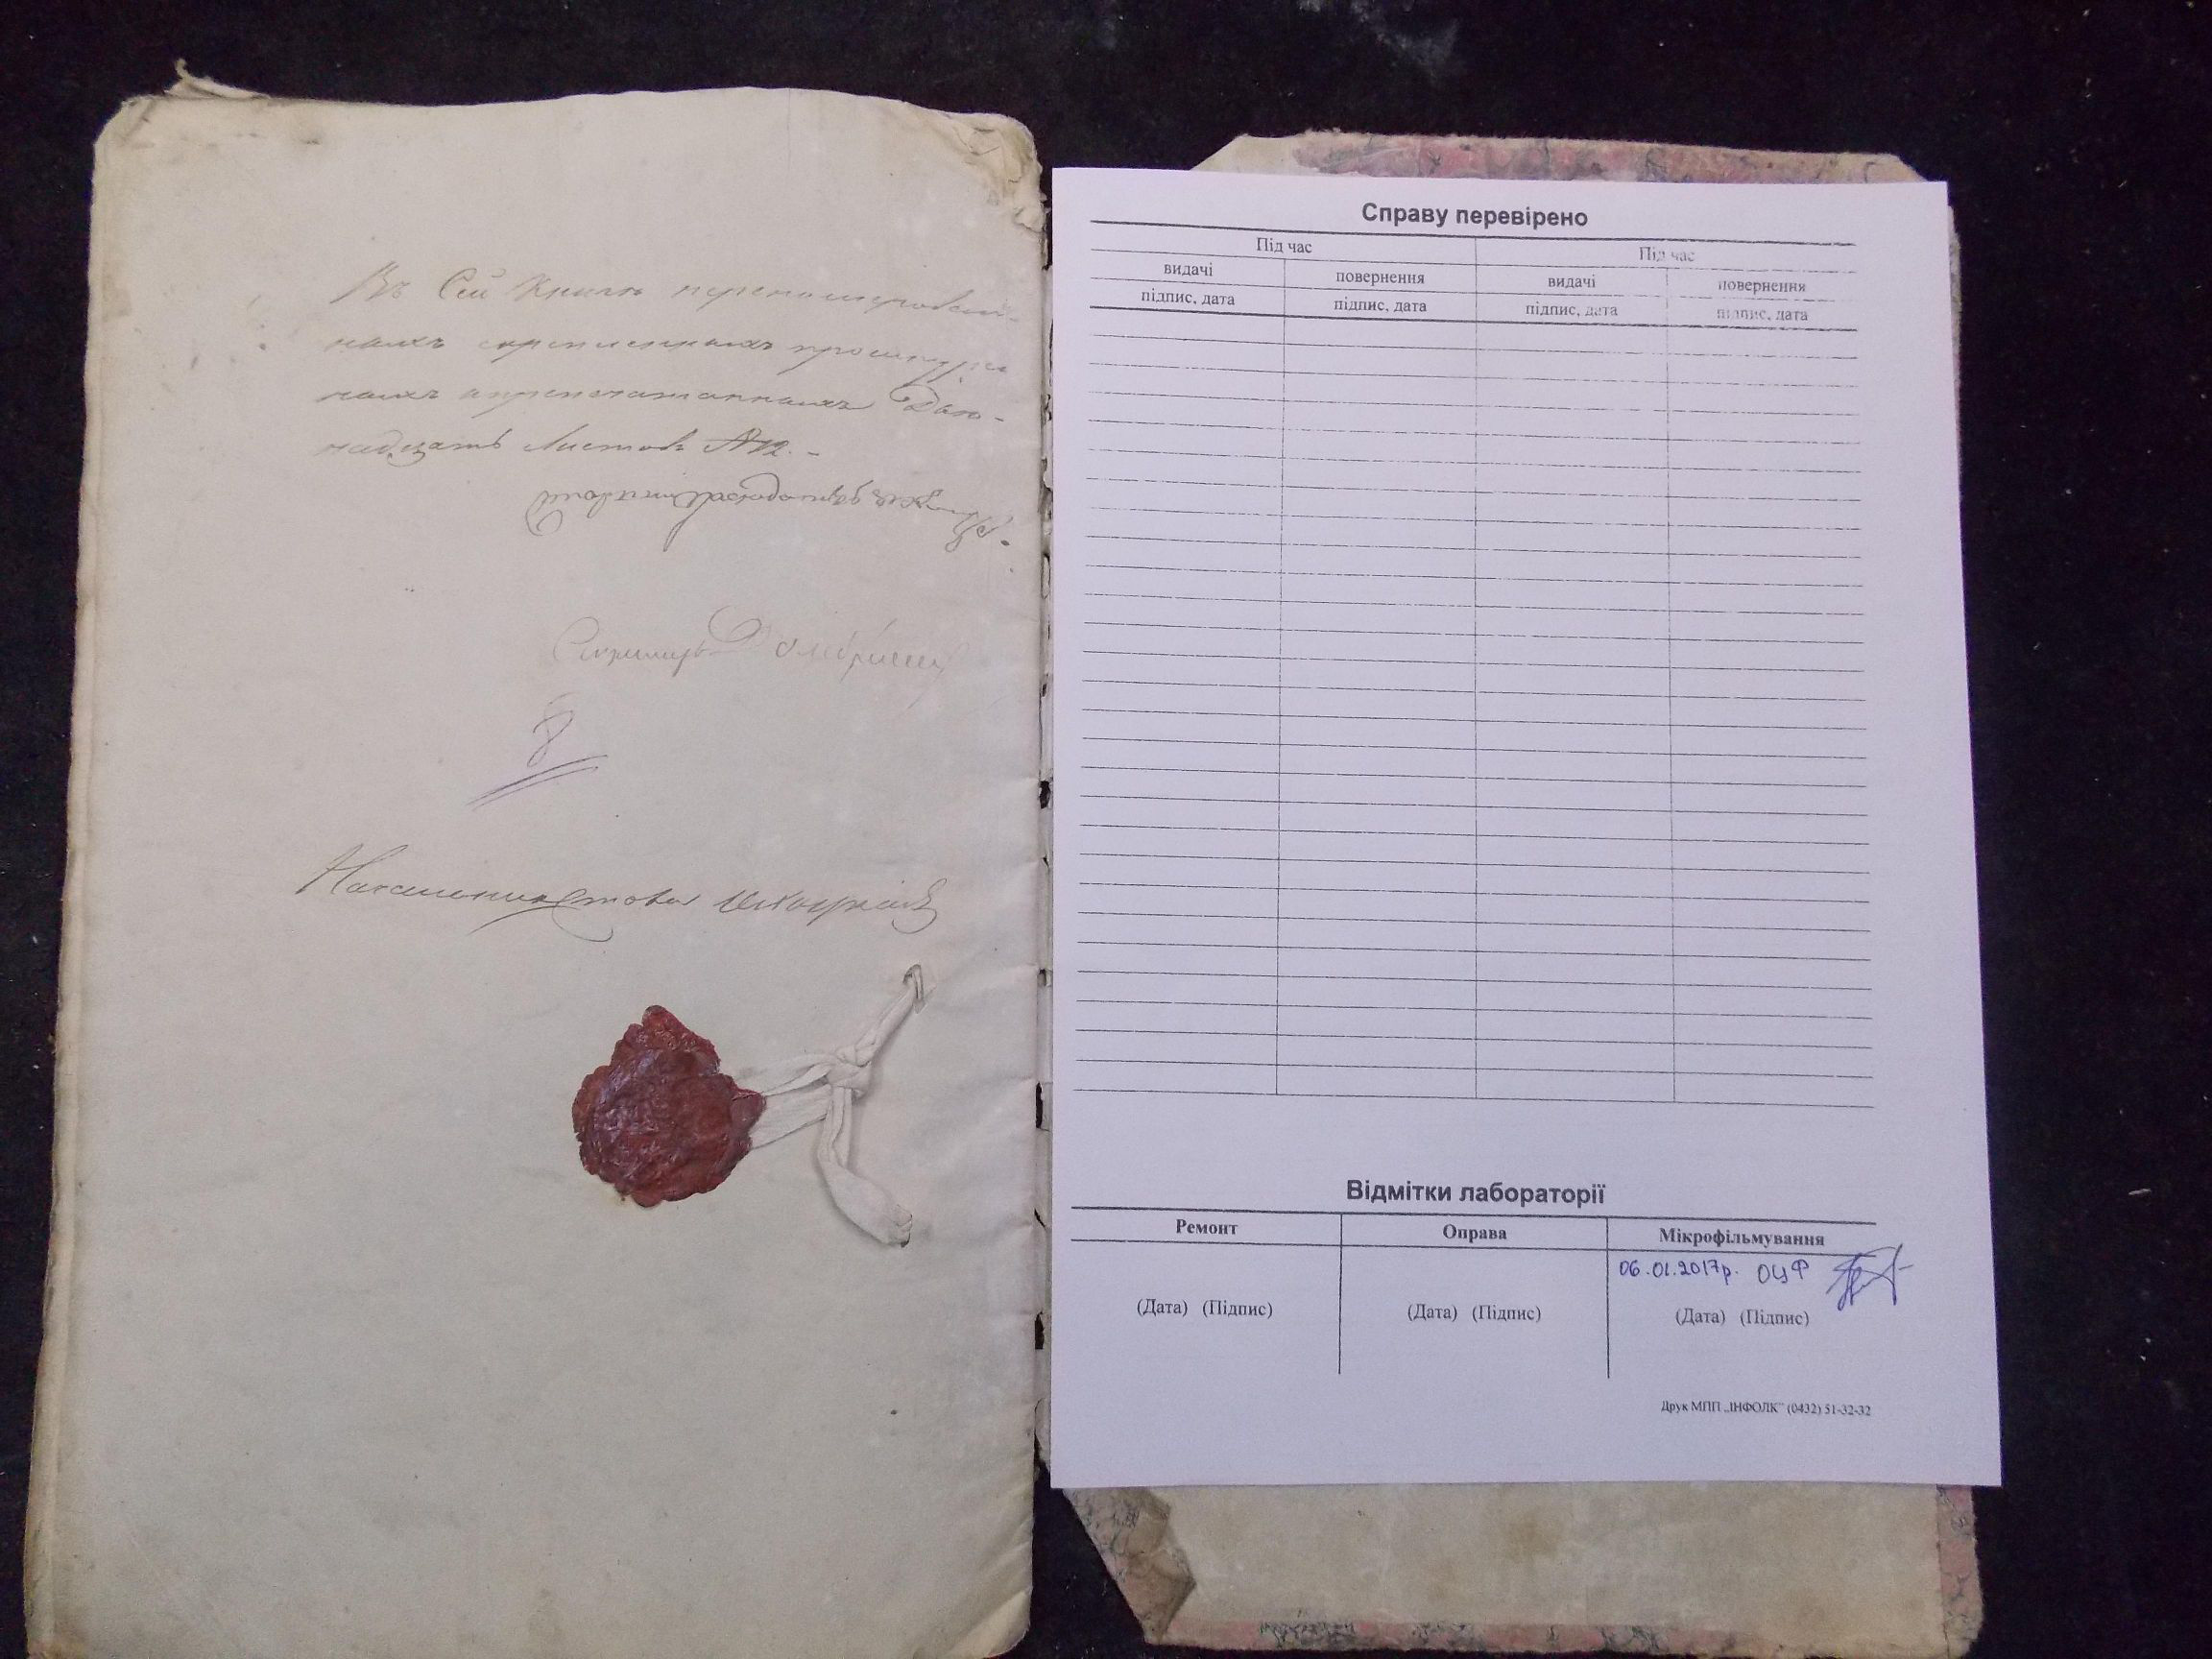 Въ Сей Книгѣ перенумерован-
ныхъ скрепленныхъ прошнуро
ванныхъ и припечатанныхъ Двѣ-
надцать Листовъ №12. -
Секретарь Домбровскій
8
Справу перевірено
Під час Під час
видачі повернення видачі повернення
підпис, дата підпис, дата підпис, дата підпис, дата
Відмітки лабораторії
Ремонт Оправа Мікрофільмування
06.01.2017р. ОЦФ
(Дата) (Підпис) (Дата) (Підпис) (Дата) (Підпис)
Друк МПП „ІНФОЛК” (0432) 51-32-32